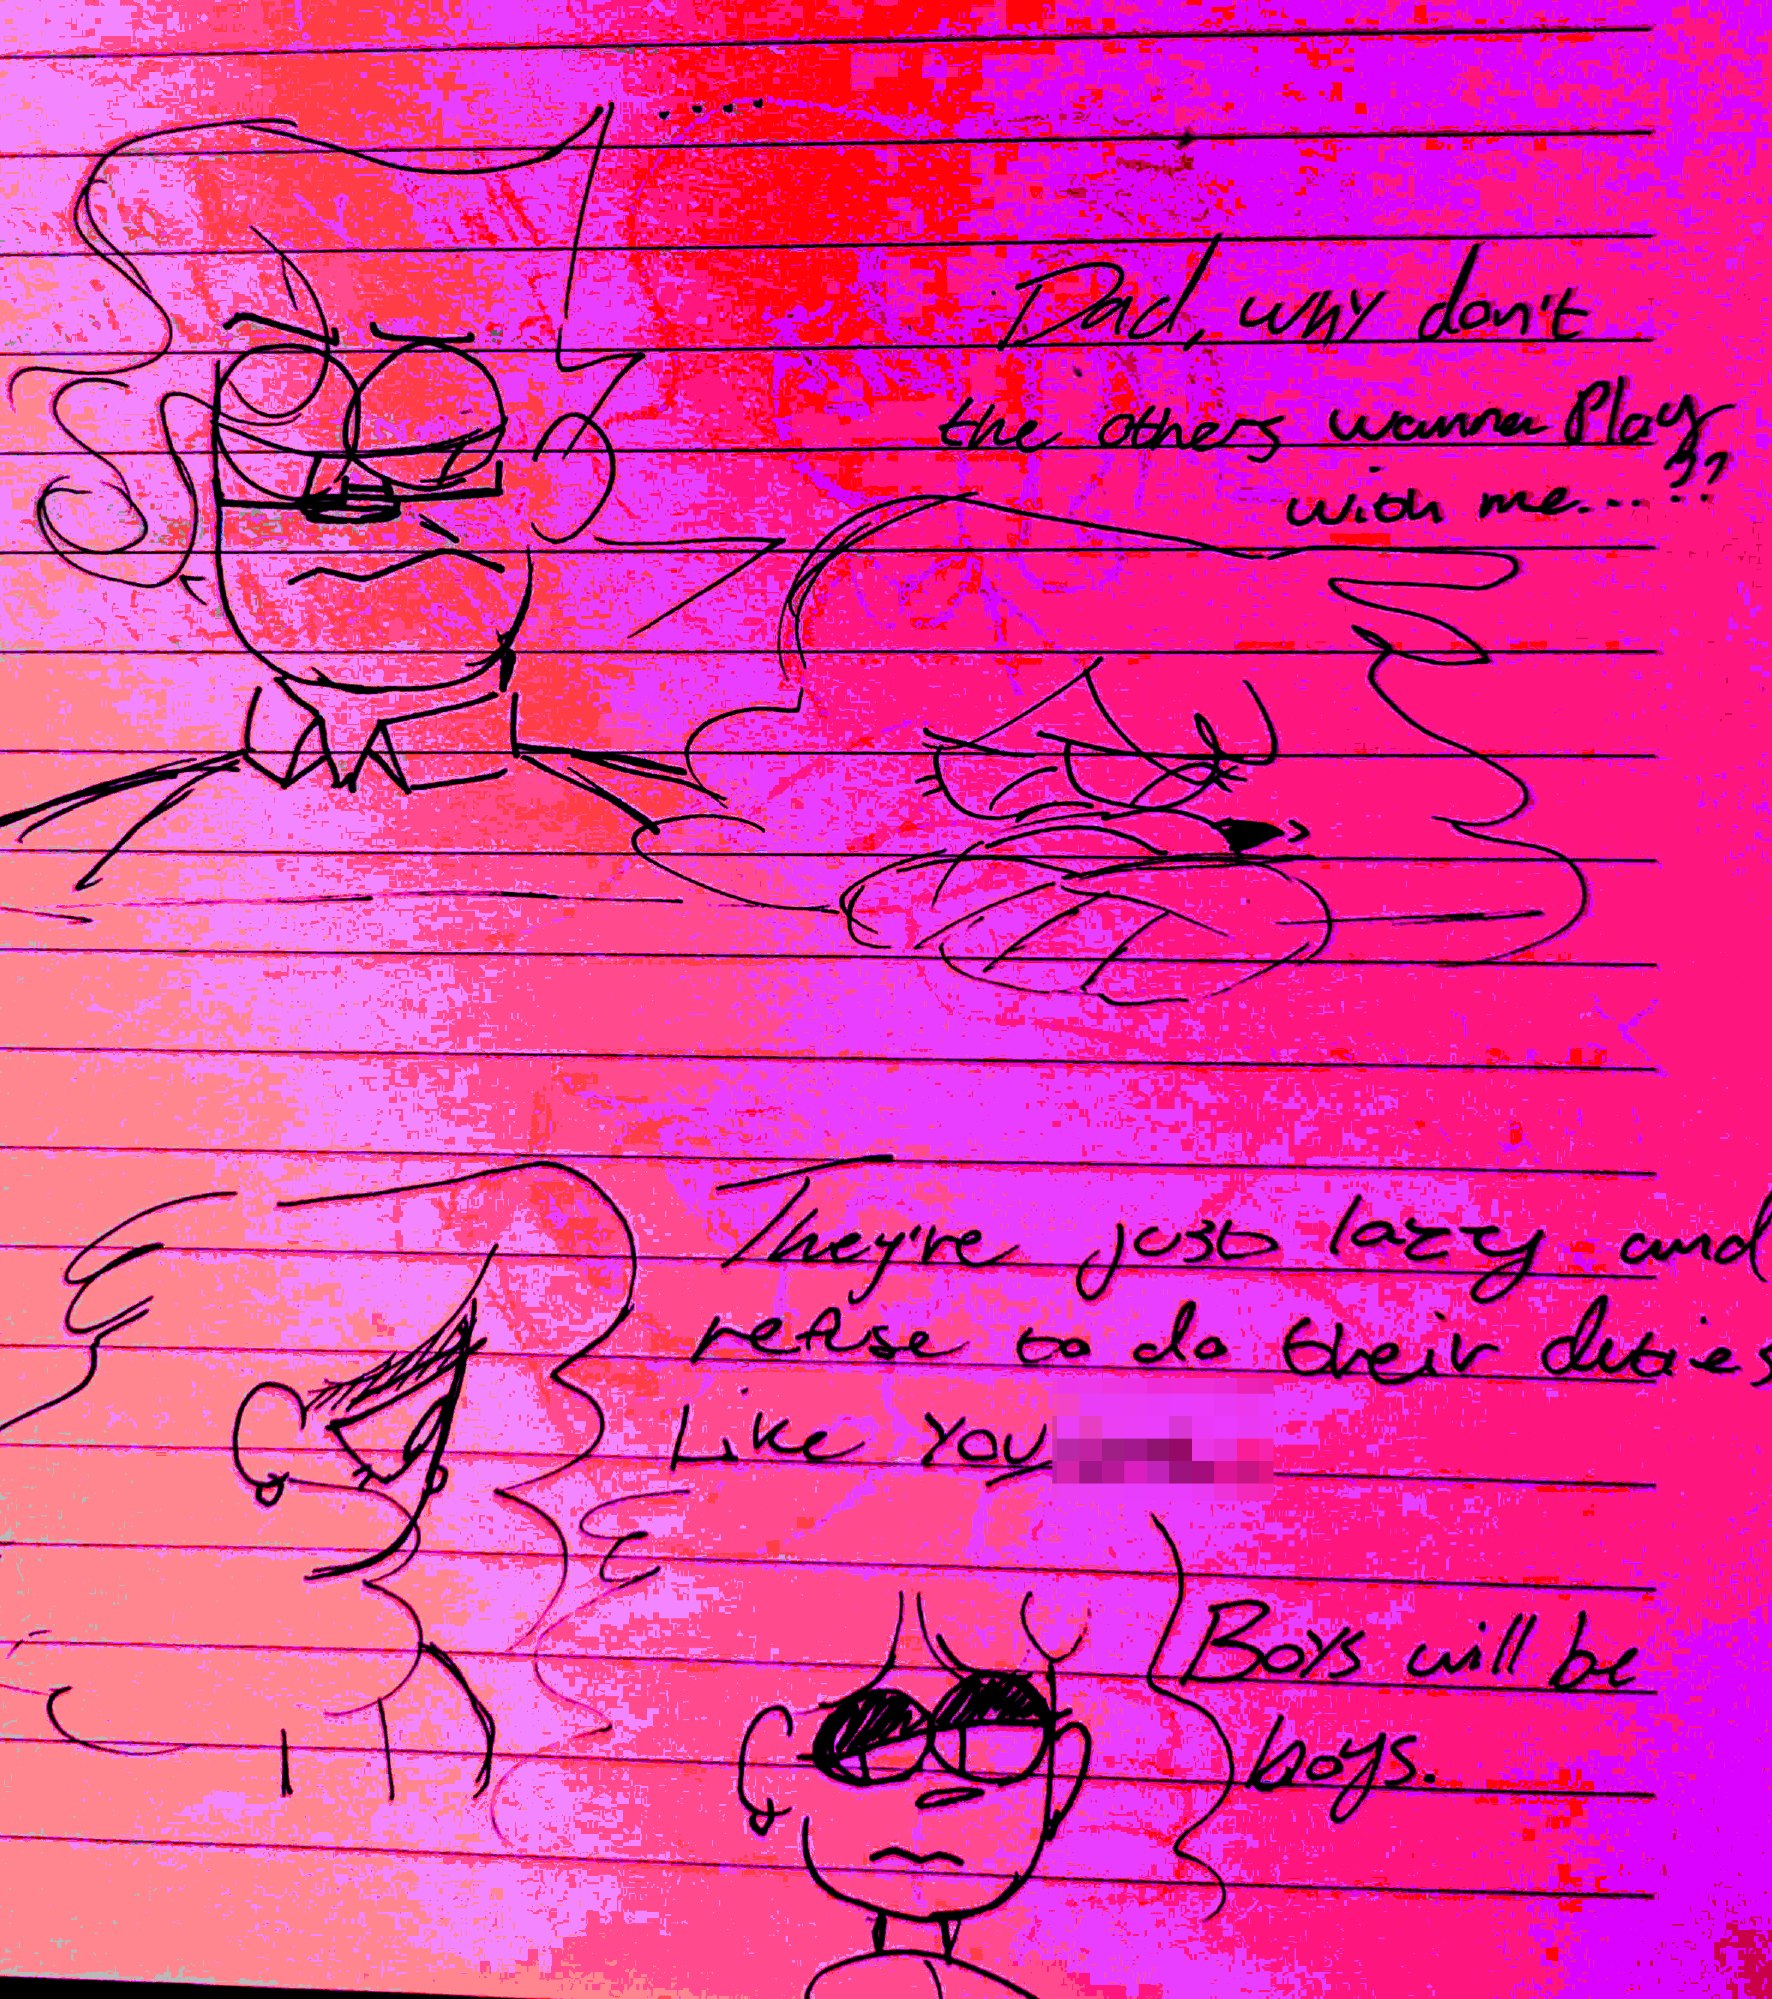 ....
Dad, why don't
the others wanna Play
with me...??
They're just lazzy and
refuse to do their duties
Like You
Boys will be
boys.